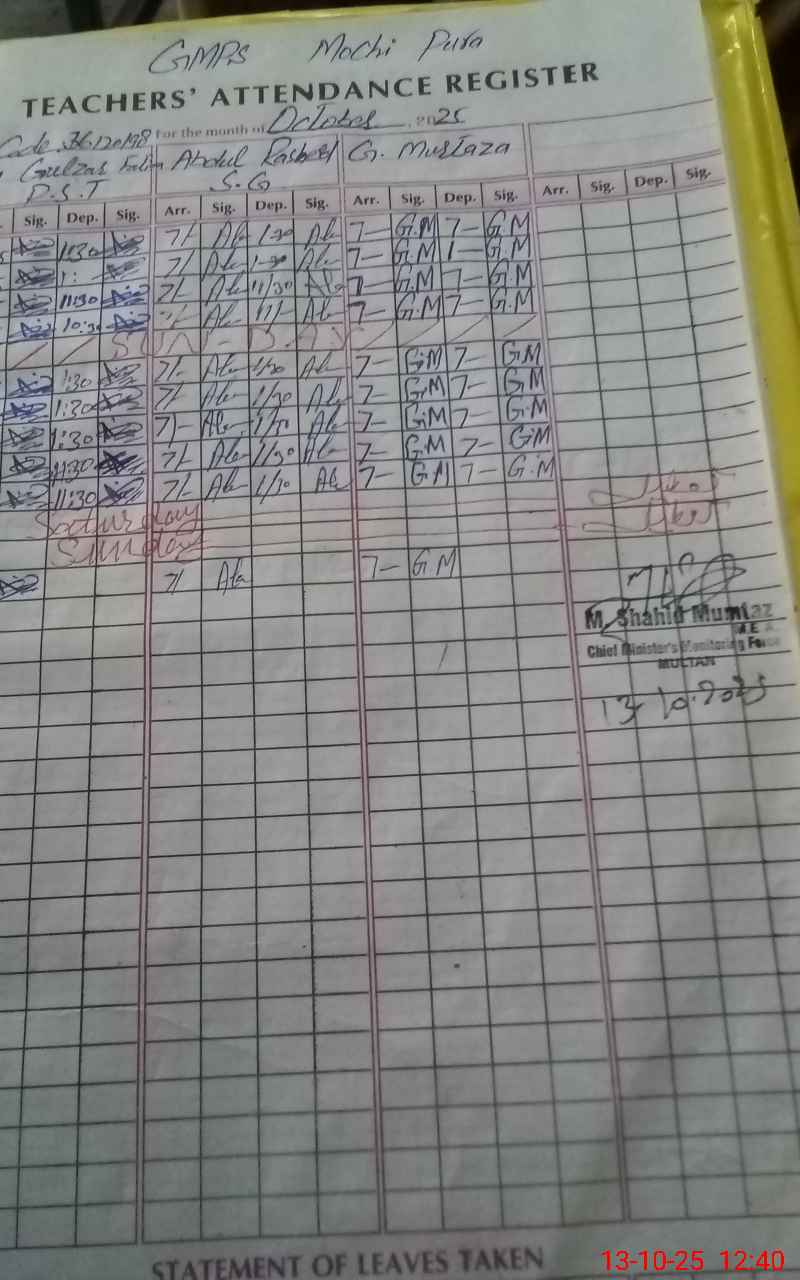 GMPS Mochi Pura
TEACHERS' ATTENDANCE REGISTER
Code. 36120198 For the month of October, 2025
Abdul Rasheed G. Murtaza
P.S.T S.G
Sig. Dep. Sig. Arr. Sig. Dep. Sig. Arr. Sig. Dep. Sig. Arr. Sig. Dep. Sig.
1:30 7/- 1-30 7- G.M 7- G.M
1: 7/- 1-30 7- G.M 1- G.M
11:30 7/- 11/30 7- G.M 7- G.M
10:30 7/- 11/- 7- G.M 7- G.M
SUN-DAY
1:30 7/- 1/30 7- G.M 7- G.M
1:30 7/- 1/30 7- G.M 7- G.M
1:30 7/- 1/30 7- G.M 7- G.M
1:30 7/- 1/30 7- G.M 7- G.M
11:30 7/- 1/30 7- G.M 7- G.M
Saturday
Sunday
7/ 7- G.M
M. Shahid Mumtaz
M E A
Chief Minister's Monitoring Force
MULTAN
13-10-2025
STATEMENT OF LEAVES TAKEN
13-10-25 12:40